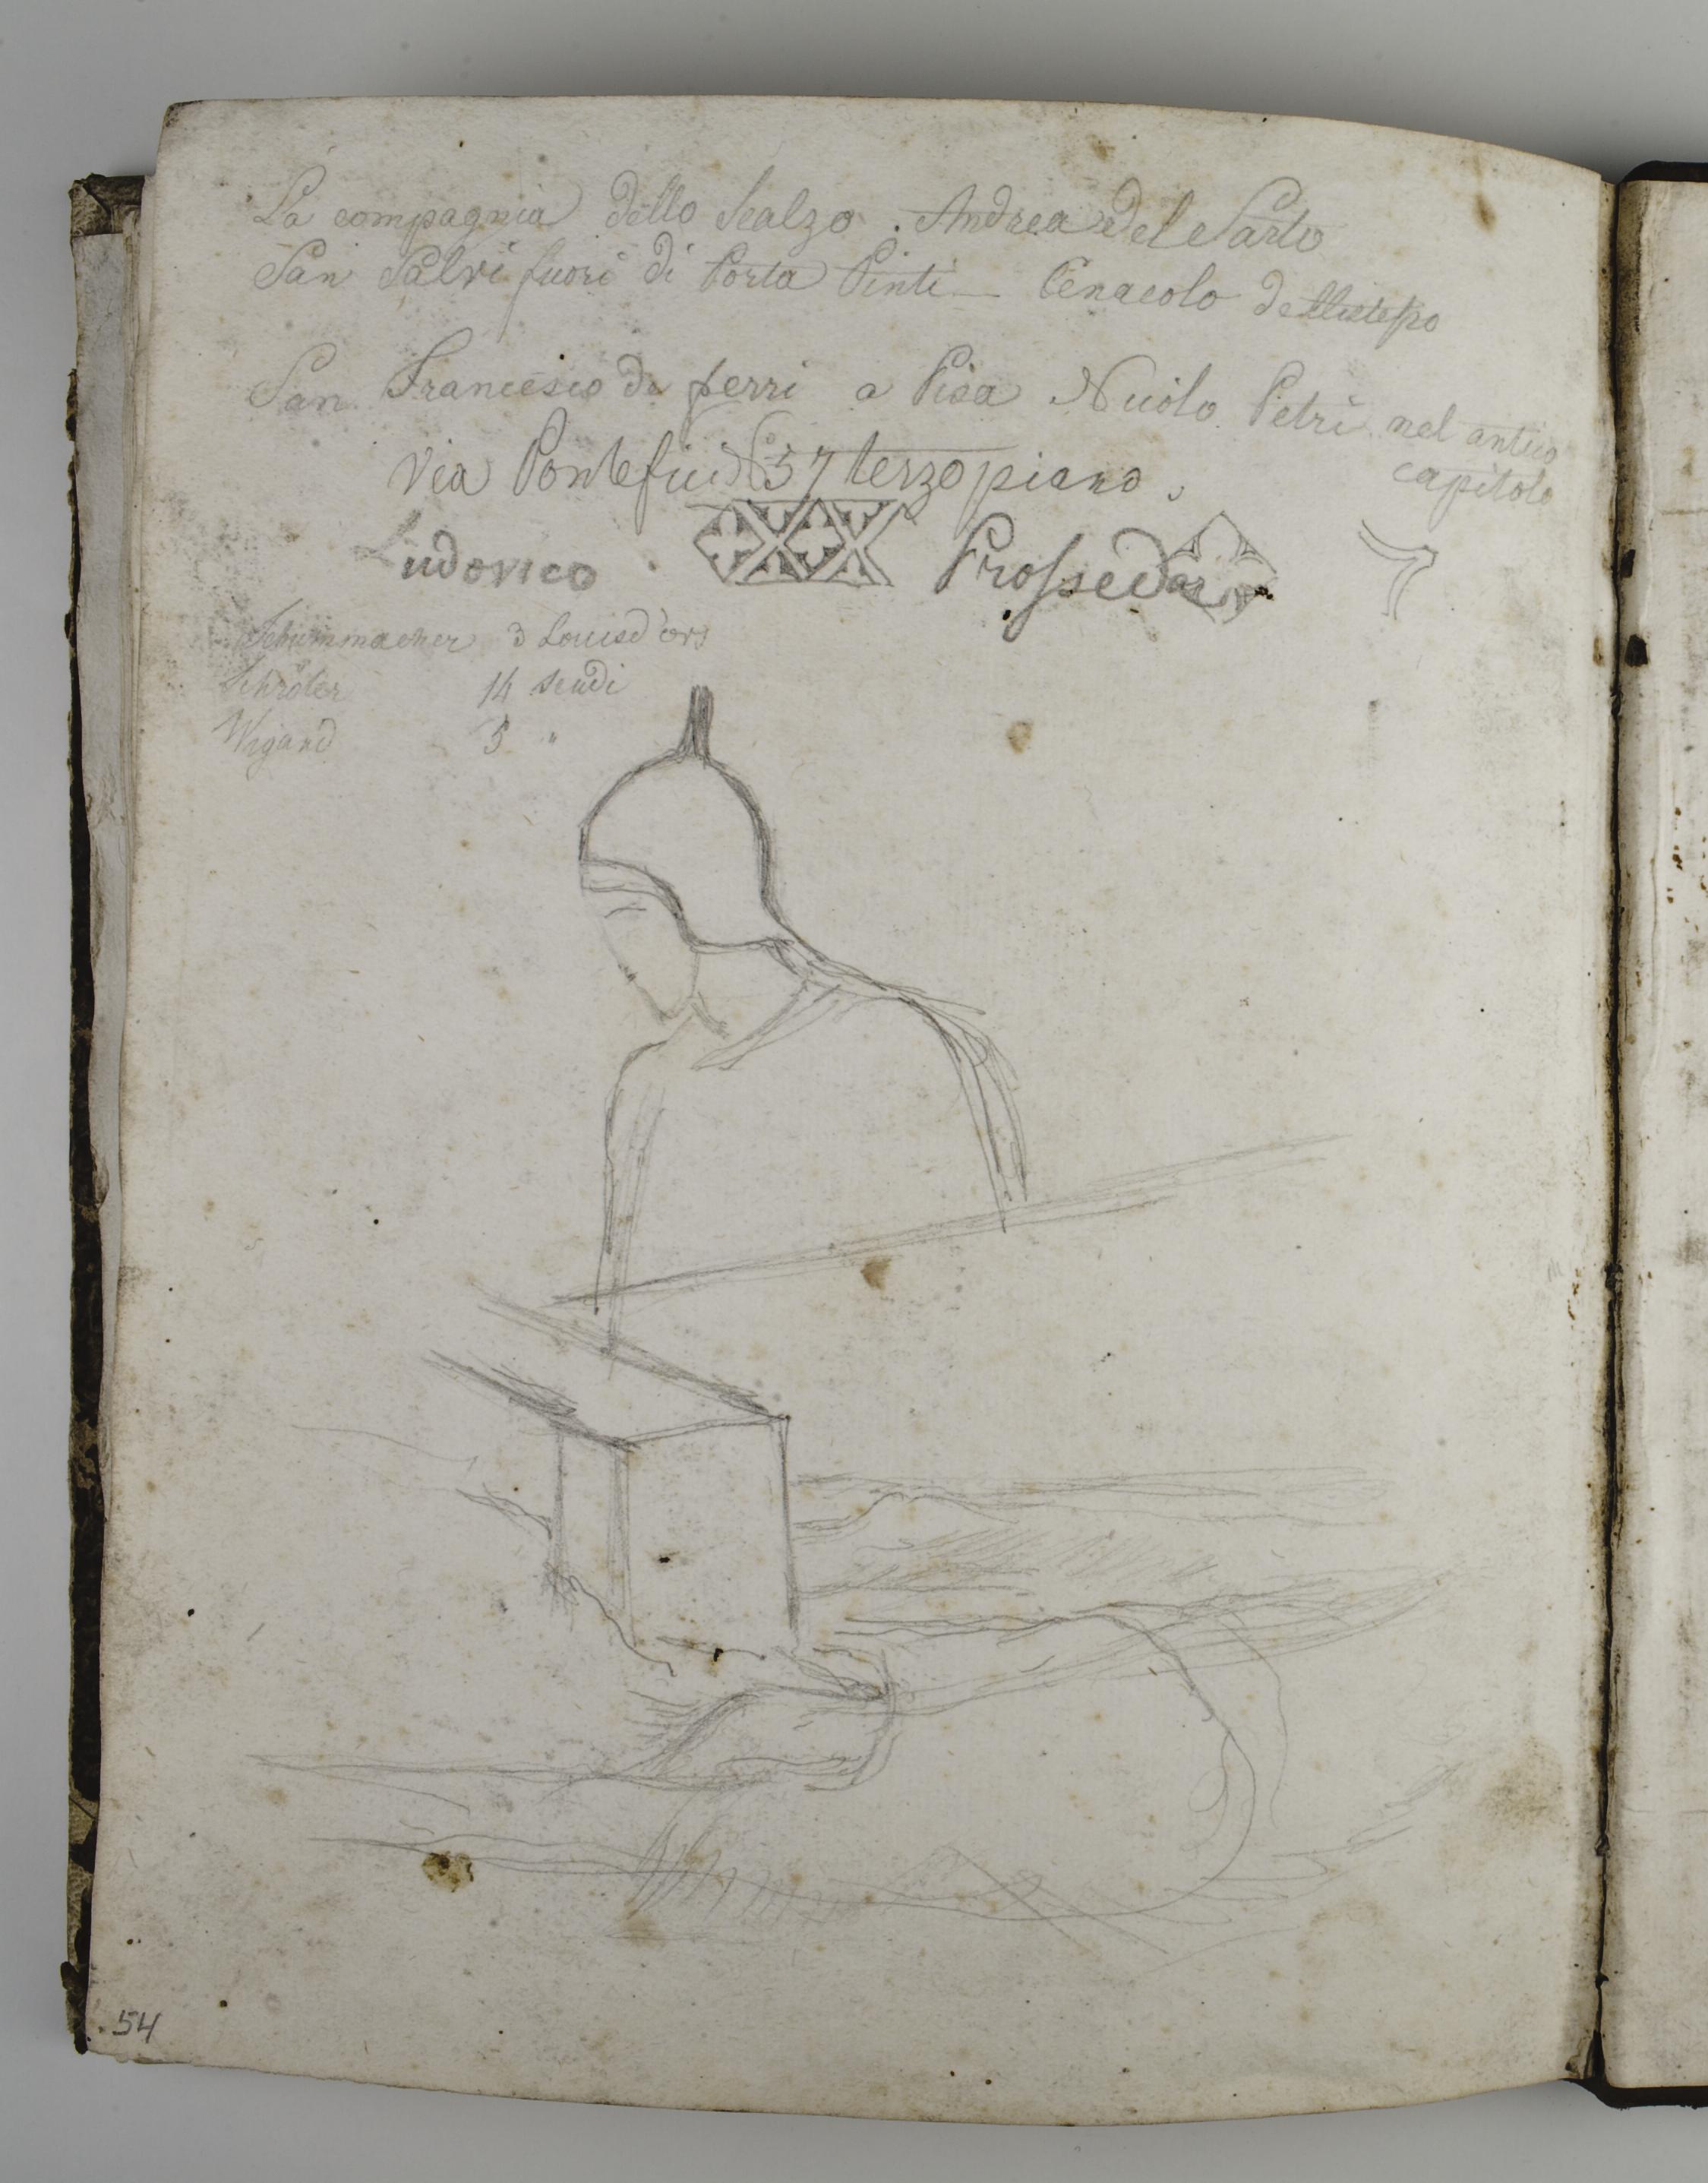 La compagnia dello Scalzo. Andrea del Sarto
San Salvi fuori di Porta Pinti — Cenacolo dellistesso
San Francesco de ferri a Pisa Nicolo Petri nel antico
capitolo
Via Pontefici No 57 terzo piano.
Ludovico Prossedi
Schummacher 3 Louisd'ors
Schröter 14 scudi
Wigand 5 "
54